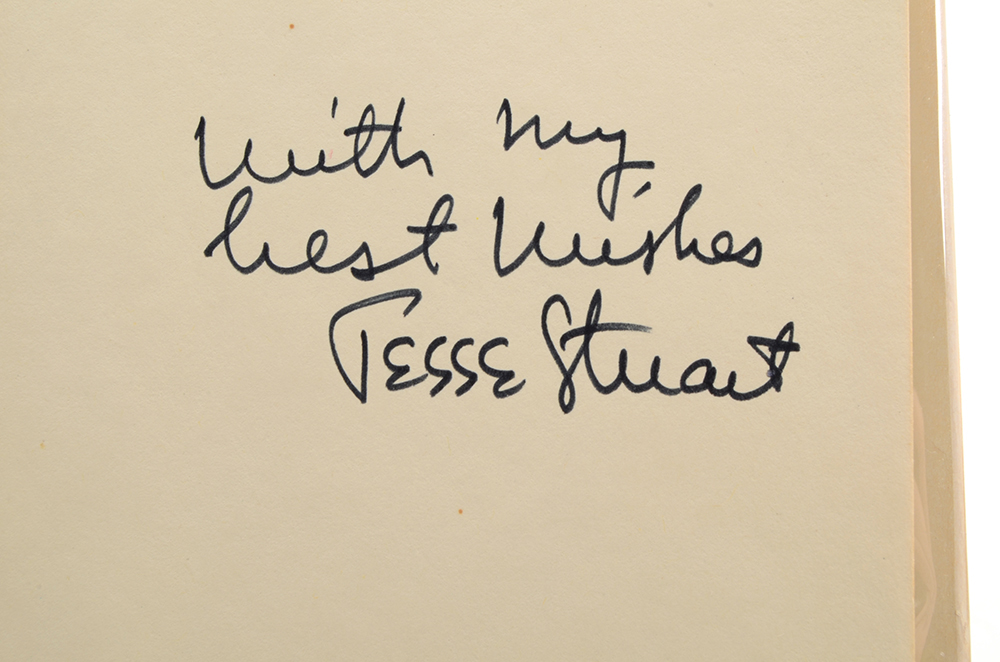 With my
best wishes
Jesse Stuart